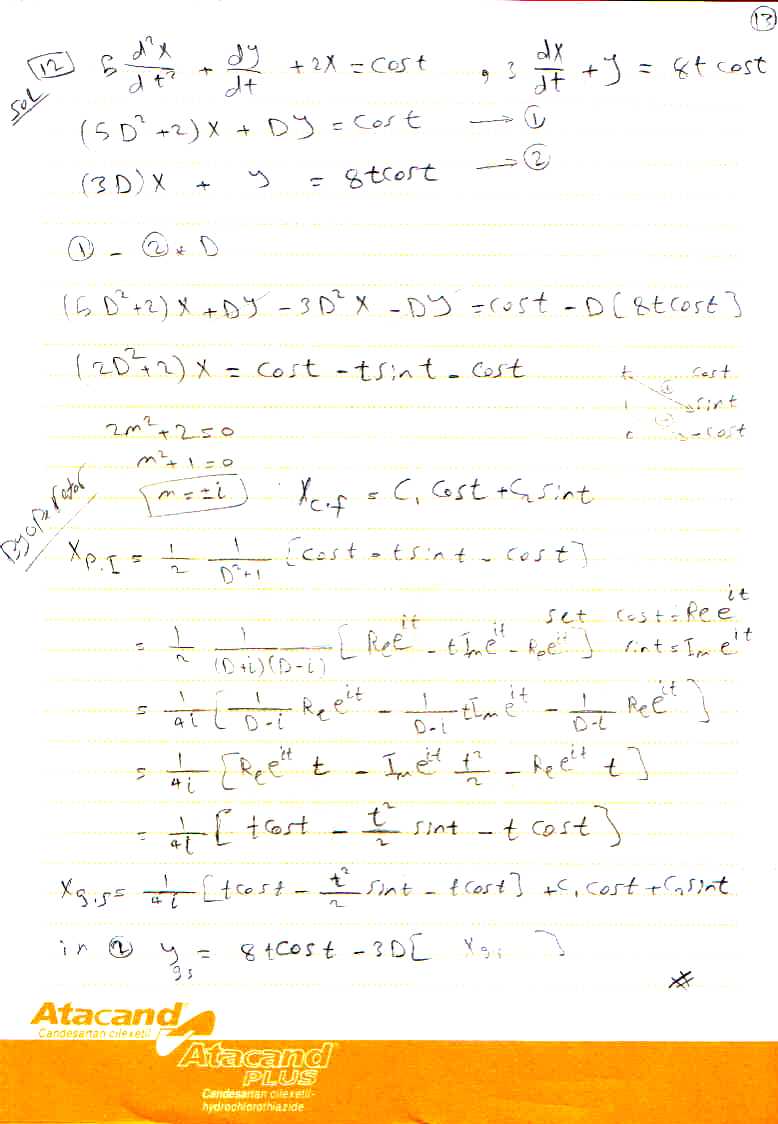 13
12 5 d²x/dt² + dy/dt + 2x = cost , 3 dx/dt + y = 8t cost
Sol
(5D²+2)x + Dy = cost → ①
(3D)x + y = 8tcost → ②
① - ② * D
(5D²+2)x + Dy - 3D²x - Dy = cost - D[8tcost]
(2D²+2)x = cost - tsint - cost
t cost
1 sint
0 -cost
2m²+2=0
m²+1=0
m=±i x_c.f = C₁ cost + C₂ sint
D_yoperator
x_P.I = 1/2 1/(D²+1) [cost - tsint - cost]
set cost = Re e^it
= 1/2 1/((D+i)(D-i)) [Re e^it - t Im e^it - Re e^it] sint = Im e^it
= 1/4i [1/(D-i) Re e^it - 1/(D-i) t Im e^it - 1/(D-i) Re e^it]
= 1/4i [Re e^it t - Im e^it t²/2 - Re e^it t]
= 1/4i [tcost - t²/2 sint - t cost]
x_g.s = 1/4i [tcost - t²/2 sint - tcost] + C₁ cost + C₂ sint
in ② y_gs = 8tcost - 3D[ x_gs ]
Atacand
Candesartan cilexetil
Atacand
PLUS
Candesartan cilexetil-
hydrochlorothiazide